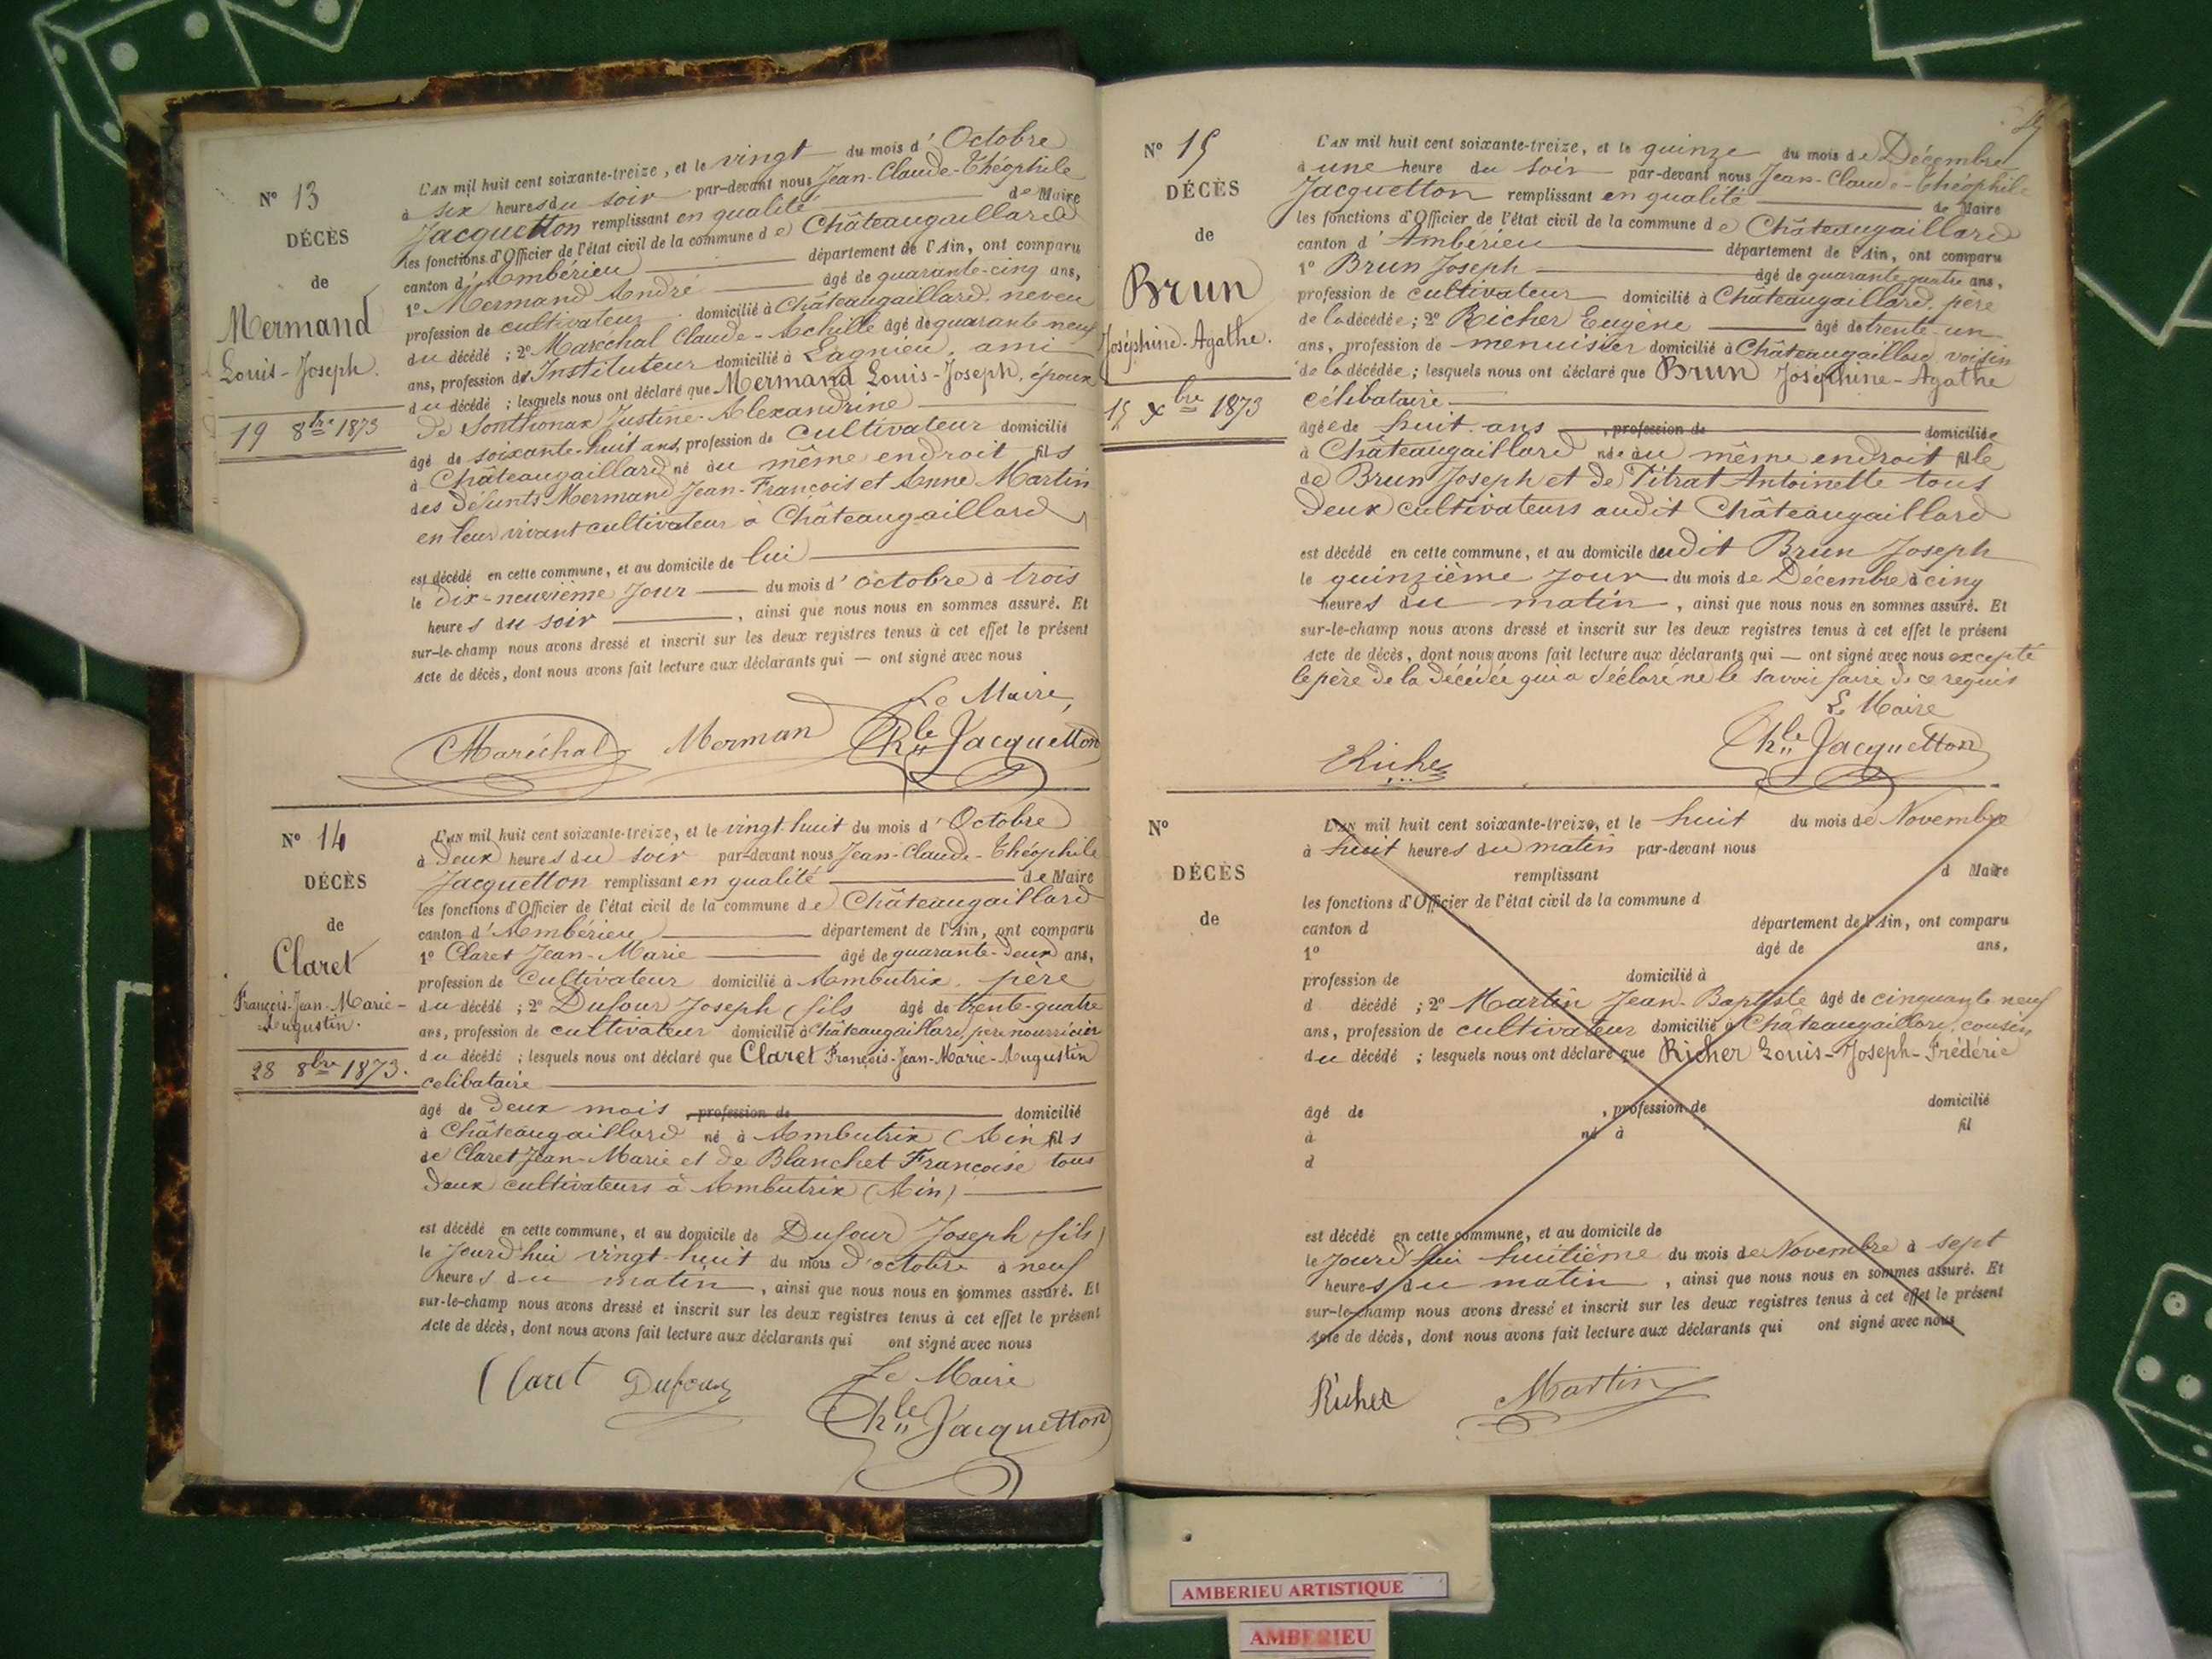 Nº 13
DÉCÈS
de
Mermand
Louis-Joseph.
19 8bre 1873
L'AN mil huit cent soixante-treize, et le vingt du mois d'Octobre
à six heures du soir par-devant nous Jean-Claude-Théophile
Jacquetton remplissant en qualité de Maire
les fonctions d'Officier de l'état civil de la commune de Châteaugaillard
canton d'Ambérieu département de l'Ain, ont comparu
1º Mermand André âgé de quarante-cinq ans,
profession de cultivateur domicilié à Châteaugaillard, neveu
du décédé ; 2º Maréchal Claude-Achille âgé de quarante neuf
ans, profession d'Instituteur domicilié à Lagnieu, ami
du décédé ; lesquels nous ont déclaré que Mermand Louis-Joseph, époux
de Sonthonax Justine-Alexandrine
âgé de soixante-huit ans, profession de cultivateur domicilié
à Châteaugaillard né au même endroit fils
des défunts Mermand Jean-François et Anne Martin
en leur vivant cultivateur à Châteaugaillard
est décédé en cette commune, et au domicile de lui
le dix-neuvième jour du mois d'octobre à trois
heures du soir, ainsi que nous nous en sommes assuré. Et
sur-le-champ nous avons dressé et inscrit sur les deux registres tenus à cet effet le présent
Acte de décès, dont nous avons fait lecture aux déclarants qui — ont signé avec nous
Le Maire,
Maréchal Merman Thle Jacquetton
Nº 14
DÉCÈS
de
Claret
François-Jean-Marie-
Augustin.
28 8bre 1873.
L'AN mil huit cent soixante-treize, et le vingt-huit du mois d'Octobre
à deux heures du soir par-devant nous Jean-Claude-Théophile
Jacquetton remplissant en qualité de Maire
les fonctions d'Officier de l'état civil de la commune de Châteaugaillard
canton d'Ambérieu département de l'Ain, ont comparu
1º Claret Jean-Marie âgé de quarante-deux ans,
profession de cultivateur domicilié à Ambutrix, père
du décédé ; 2º Dufour Joseph (fils âgé de trente-quatre
ans, profession de cultivateur domicilié à Châteaugaillard, père nourricier
du décédé ; lesquels nous ont déclaré que Claret François-Jean-Marie-Augustin
celibataire
âgé de deux mois , profession de domicilié
à Châteaugaillard né à Ambutrix (Ain) fils
de Claret Jean-Marie et de Blanchet Françoise tous
deux cultivateurs à Ambutrix (Ain)
est décédé en cette commune, et au domicile de Dufour Joseph (fils)
le jourd'hui vingt-huit du mois d'octobre à neuf
heures du matin, ainsi que nous nous en sommes assuré. Et
sur-le-champ nous avons dressé et inscrit sur les deux registres tenus à cet effet le présent
Acte de décès, dont nous avons fait lecture aux déclarants qui ont signé avec nous
Le Maire
Claret Dufour Thle Jacquetton
Nº 15
DÉCÈS
de
Brun
Joséphine-Agathe.
15 xbre 1873
L'AN mil huit cent soixante-treize, et le quinze du mois de Décembre
à une heure du soir par-devant nous Jean-Claude-Théophile
Jacquetton remplissant en qualité de Maire
les fonctions d'Officier de l'état civil de la commune de Châteaugaillard
canton d'Ambérieu département de l'Ain, ont comparu
1º Brun Joseph âgé de quarante quatre ans,
profession de cultivateur domicilié à Châteaugaillard, père
de la décédée ; 2º Richer Eugène âgé de trente-un
ans, profession de menuisier domicilié à Châteaugaillard, voisin
de la décédée ; lesquels nous ont déclaré que Brun Joséphine-Agathe
célibataire
âgée de huit ans , profession de domiciliée
à Châteaugaillard née au même endroit fille
de Brun Joseph et de Titrat Antoinette tous
deux cultivateurs audit Châteaugaillard
est décédé en cette commune, et au domicile dudit Brun Joseph
le quinzième jour du mois de Décembre à cinq
heures du matin, ainsi que nous nous en sommes assuré. Et
sur-le-champ nous avons dressé et inscrit sur les deux registres tenus à cet effet le présent
Acte de décès, dont nous avons fait lecture aux déclarants qui — ont signé avec nous excepté
le père de la décédée qui a déclaré ne le savoir faire de ce requis
Le Maire
Richer Thle Jacquetton
Nº
DÉCÈS
de
L'AN mil huit cent soixante-treize, et le huit du mois de Novembre
à huit heures du matin par-devant nous
remplissant d Maire
les fonctions d'Officier de l'état civil de la commune d
canton d département de l'Ain, ont comparu
1º âgé de ans,
profession de domicilié à
d décédé ; 2º Martin Jean-Baptiste âgé de cinquante neuf
ans, profession de cultivateur domicilié à Châteaugaillard, cousin
du décédé ; lesquels nous ont déclaré que Richer Louis-Joseph-Frédéric
âgé de , profession de domicilié
à né à fil
d
est décédé en cette commune, et au domicile de
le jourd'hui huitième du mois de Novembre à sept
heures du matin, ainsi que nous nous en sommes assuré. Et
sur-le-champ nous avons dressé et inscrit sur les deux registres tenus à cet effet le présent
Acte de décès, dont nous avons fait lecture aux déclarants qui ont signé avec nous
Richer Martin
AMBERIEU ARTISTIQUE
AMBERIEU